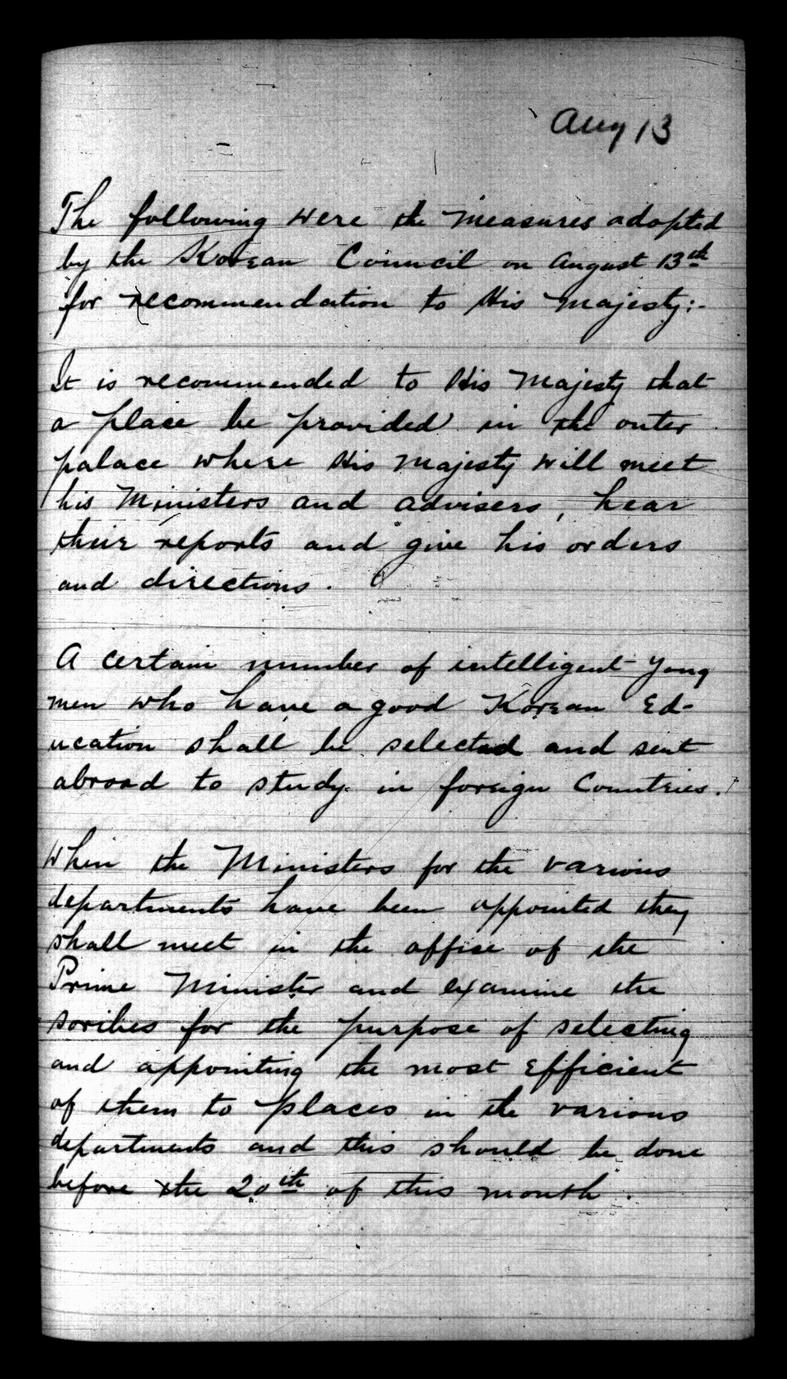 Aug 13
The following were the measures adopted
by the Korean Council on August 13th
for recommendation to His Majesty:-
It is recommended to His Majesty that
a place be provided in the outer
palace where His Majesty will meet
his Ministers and advisers, hear
their reports and give his orders
and directions.
A certain number of intelligent yong
men who have a good Korean Ed-
ucation shall be selected and sent
abroad to study in foreign Countries.
When the Ministers for the various
departments have been appointed they
shall meet in the office of the
Prime Minister and examine the
scribes for the purpose of selecting
and appointing the most Efficient
of them to places in the various
departments and this should be done
before the 20th of this month.